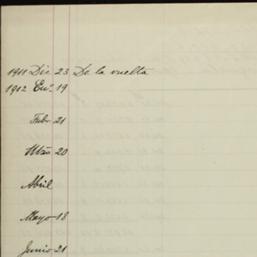 1911 Dic 23 De la vuelta
1912 En.º 19
Febr. 21
Mzo 20
Abril
Mayo 18
Junio 21